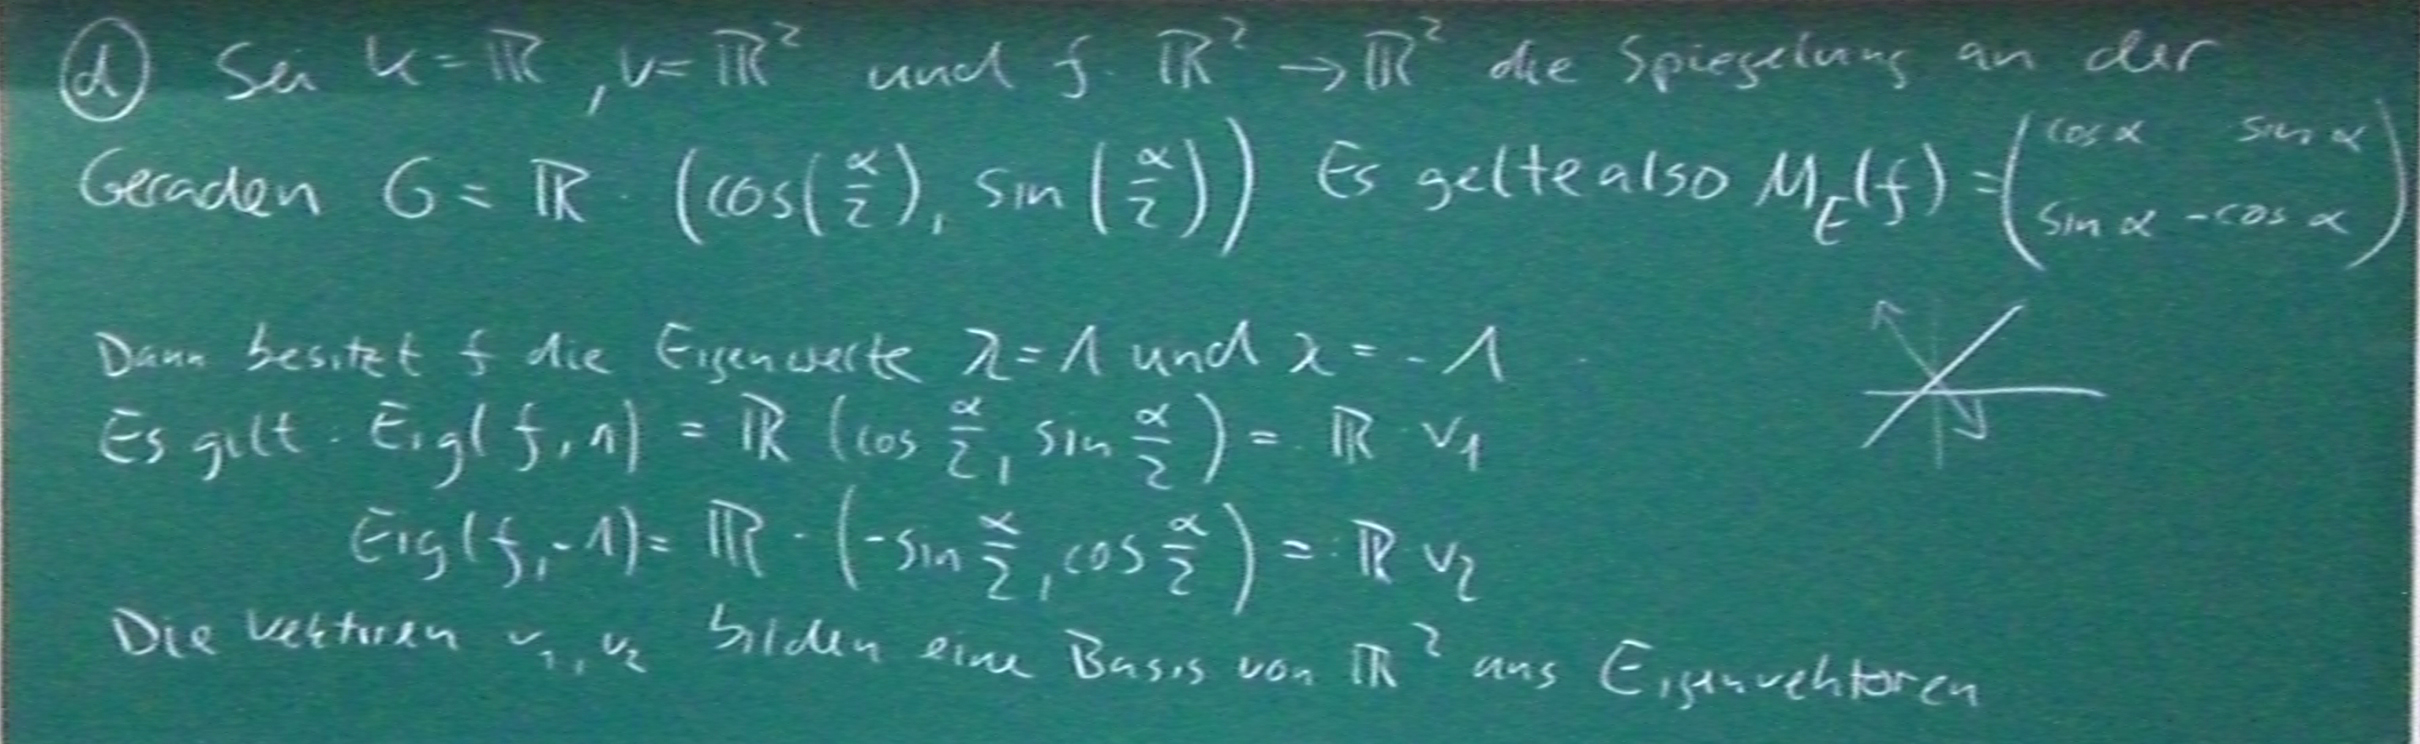 ⓓ Sei K = ℝ, V = ℝ² und f: ℝ² → ℝ² die Spiegelung an der
Geraden G = ℝ · (cos(α/2), sin(α/2)) Es gelte also M_E(f) = (cos α sin α
sin α -cos α)
Dann besitzt f die Eigenwerte λ = 1 und λ = -1
Es gilt: Eig(f, 1) = ℝ (cos α/2, sin α/2) =: ℝ · v₁
Eig(f, -1) = ℝ · (-sin α/2, cos α/2) =: ℝ v₂
Die Vektoren v₁, v₂ bilden eine Basis von ℝ² aus Eigenvektoren